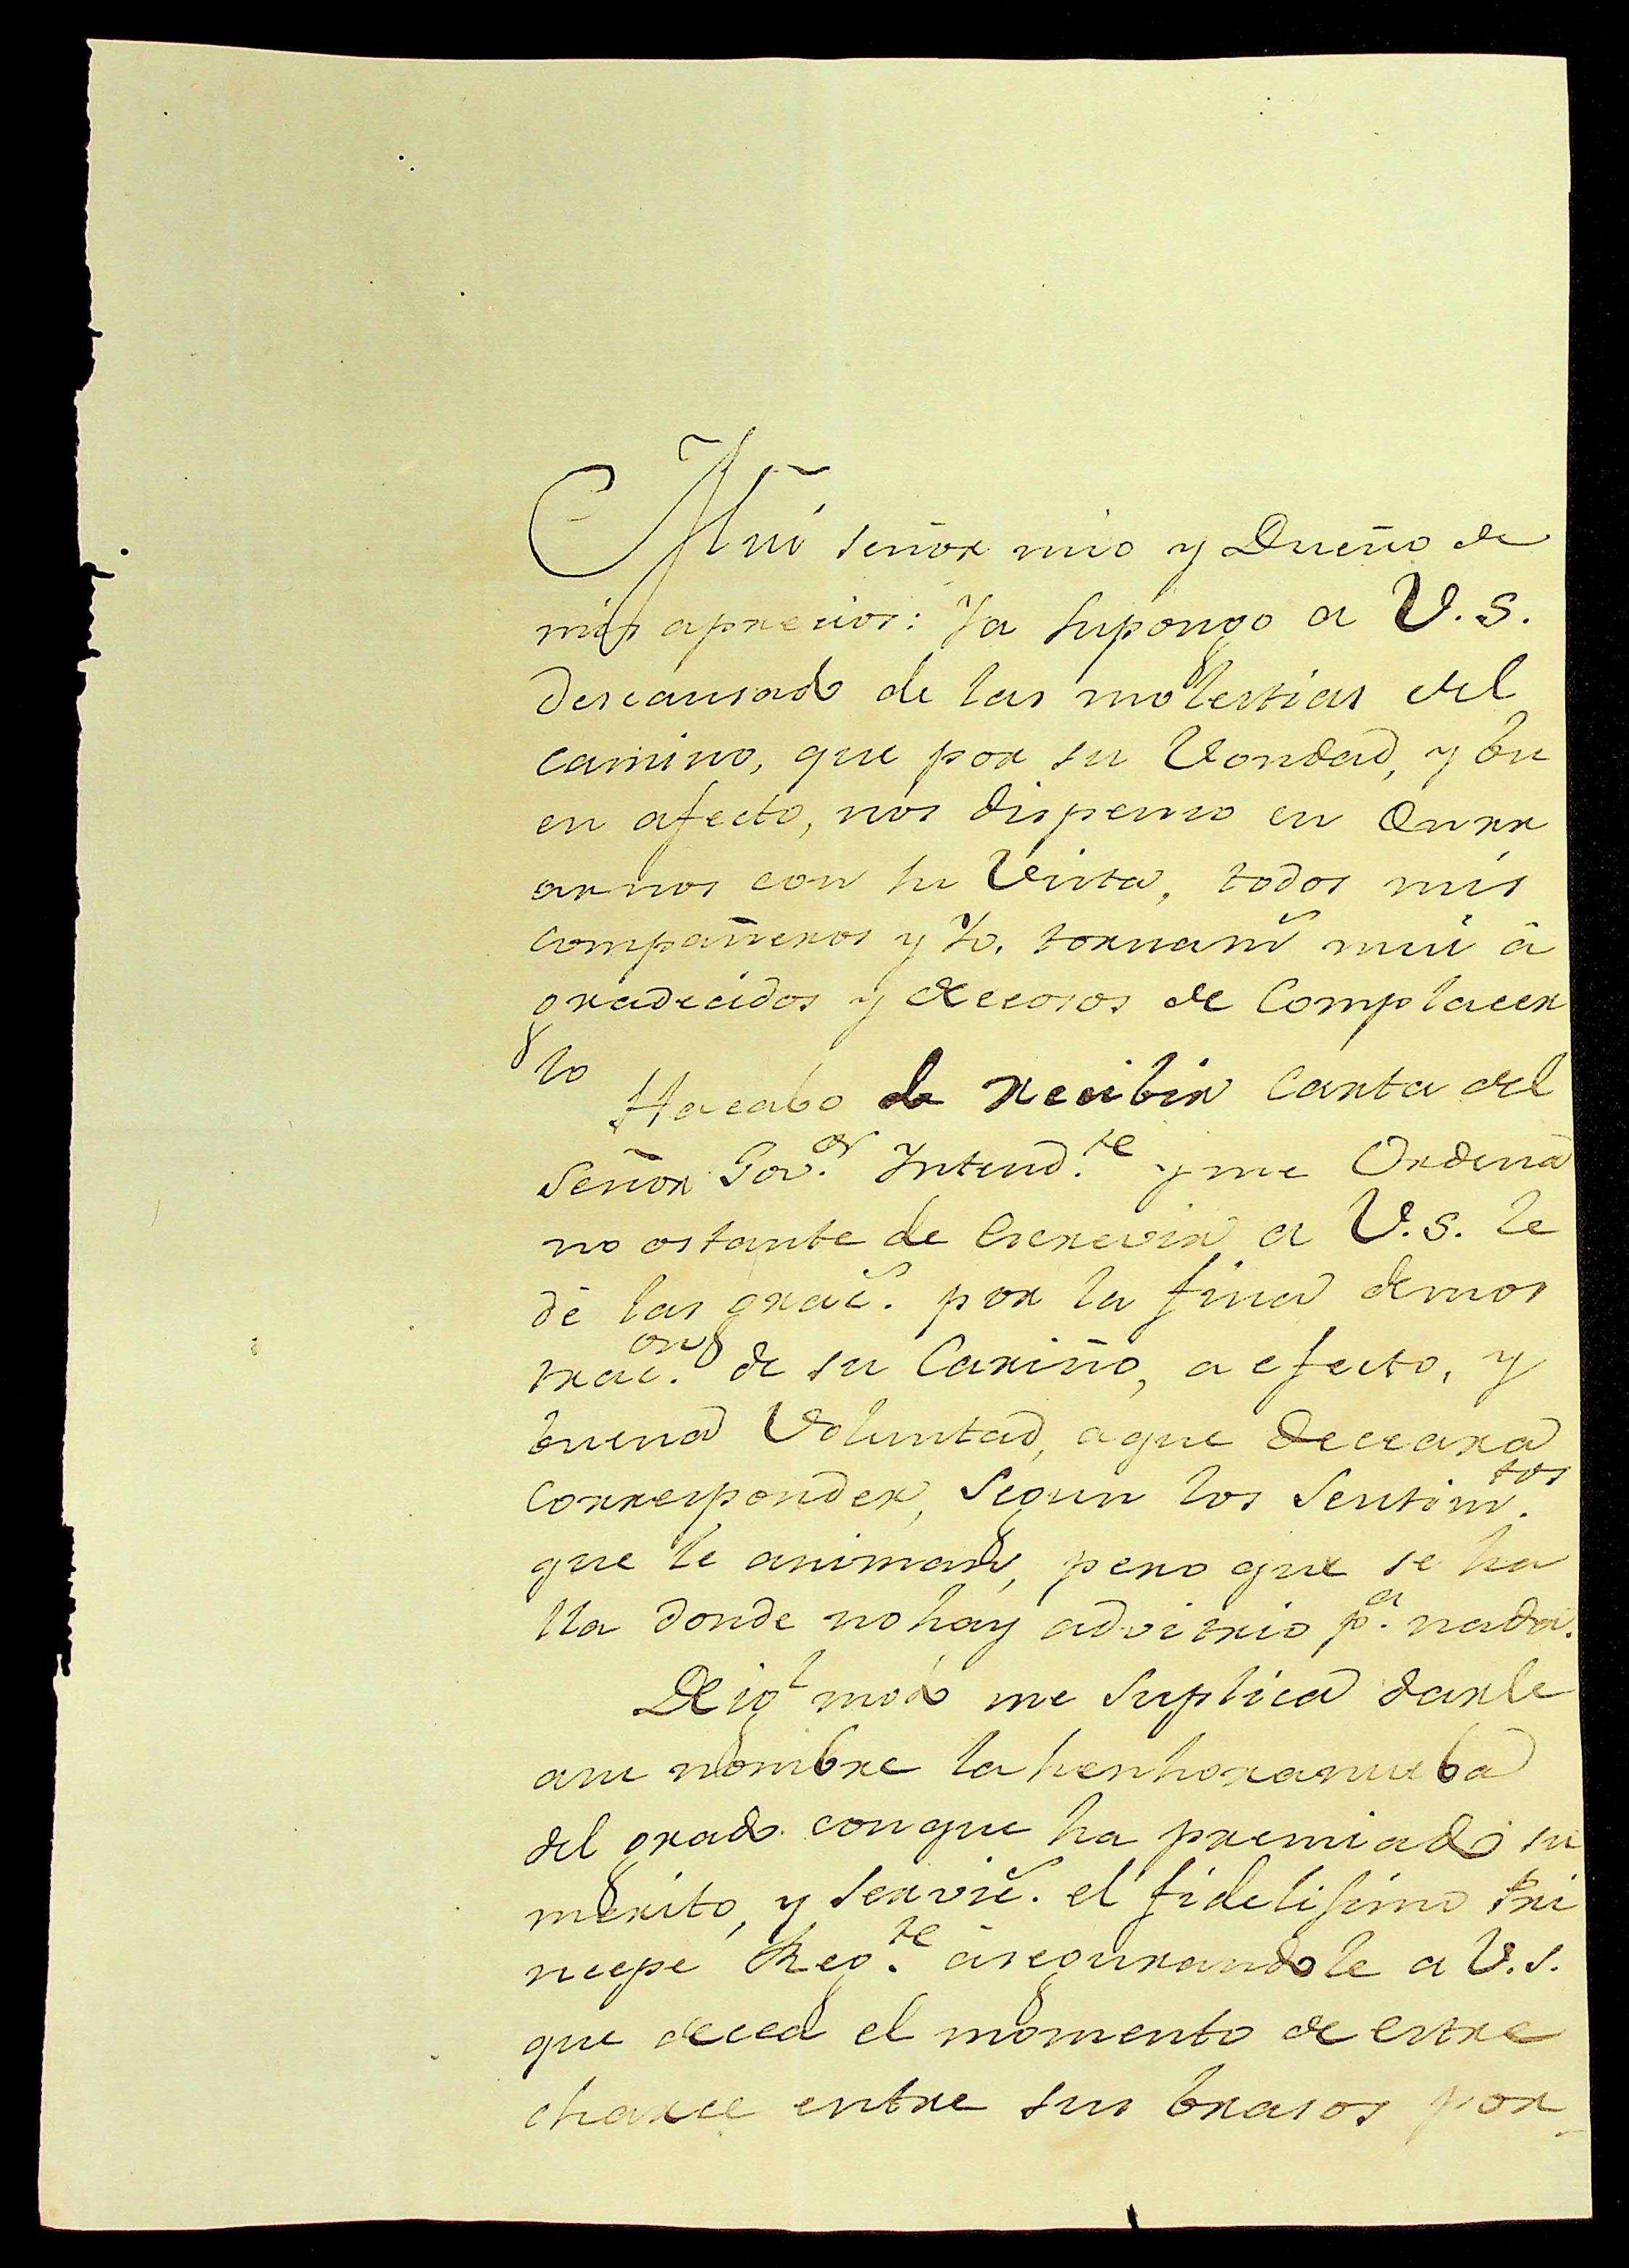 Mui señor mio y Dueño de
mis aprecios: Ya supongo a V.S.
descansado de las molestias del
camino, que por su Vondad, y bu
en afecto, nos dispenso en Onrr
arnos con su Vista, todos mis
compañeros y Yo. tornam.̃ mui â
gradecidos y dececosos de Complacer
lo
Hacabo de recibir Carta del
Señor Gov.ᵒʳ Intend.ᵗᵉ y me Ordena
no ostante de Escrevir a V.S. le
dé las grac.̃ por la fina demos
trac.ᵒⁿ de su Cariño, a efecto, y
buena Voluntad, aque dececara
corresponder, segun los Sentim.ᵗᵒˢ
que le animan, pero que se ha
lla donde no hay advitrio p.ᵃ nada.
De ig.ˡ modo me suplica darle
asu nombre la henhoranueba
del grado conque ha premiado su
merito, y Servic.̃ el fidelisimo Pri
ncepe Reg.ᵗᵉ âsegurandole a V.S.
que decea el momento de Estre
charce entre sus brasos por